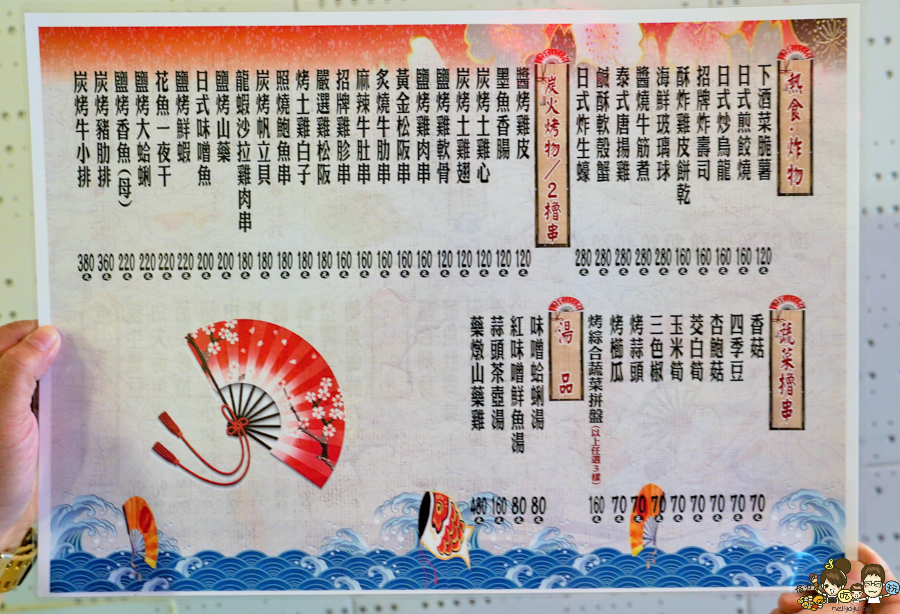 熱食·炸物
下酒菜脆薯 120元
日式煎餃燒 160元
日式炒烏龍 160元
招牌炸壽司 160元
酥炸雞皮餅乾 160元
海鮮玻璃球 280元
醬燒牛筋煮 280元
泰式唐揚雞 280元
鹹酥軟殼蟹 280元
日式炸生蠔 280元
炭火烤物/2擼串
醬烤雞皮 120元
墨魚香腸 120元
炭烤土雞心 120元
炭烤土雞翅 120元
鹽烤雞軟骨 120元
鹽烤雞肉串 160元
黃金松阪串 160元
炙燒牛肋串 160元
麻辣牛肚串 160元
招牌雞胗串 160元
嚴選雞松阪 180元
烤土雞白子 180元
照燒鮑魚串 180元
炭烤帆立貝 180元
龍蝦沙拉雞肉串 180元
鹽烤山藥 200元
日式味噌魚 200元
鹽烤鮮蝦 220元
花魚一夜干 220元
鹽烤大蛤蜊 220元
鹽烤香魚(母) 220元
炭烤豬肋排 360元
炭烤牛小排 380元
蔬菜擼串
香菇 70元
四季豆 70元
杏鮑菇 70元
茭白筍 70元
玉米筍 70元
三色椒 70元
烤蒜頭 70元
烤櫛瓜 70元
烤綜合蔬菜拼盤(以上任選3樣) 160元
湯品
味噌蛤蜊湯 80元
紅味噌鮮魚湯 80元
蒜頭茶壺湯 160元
藥燉山藥雞 480元